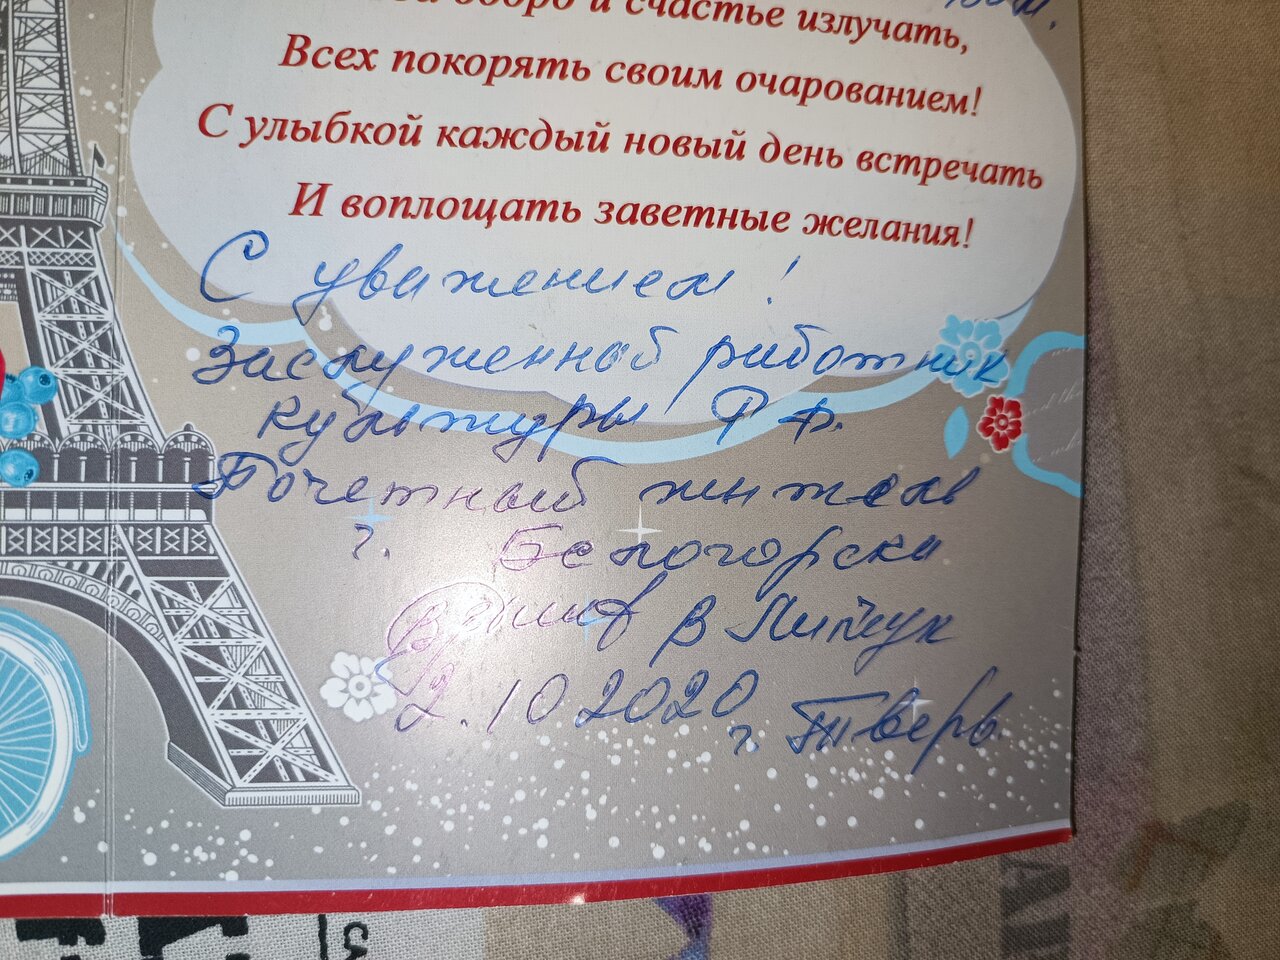 добро и счастье излучать,
Всех покорять своим очарованием!
С улыбкой каждый новый день встречать
И воплощать заветные желания!
С уважением!
Заслуженный работник
культуры РФ.
Почетный житель
г. Белогорска
В Липчук
2.10 2020
г. Тверь.